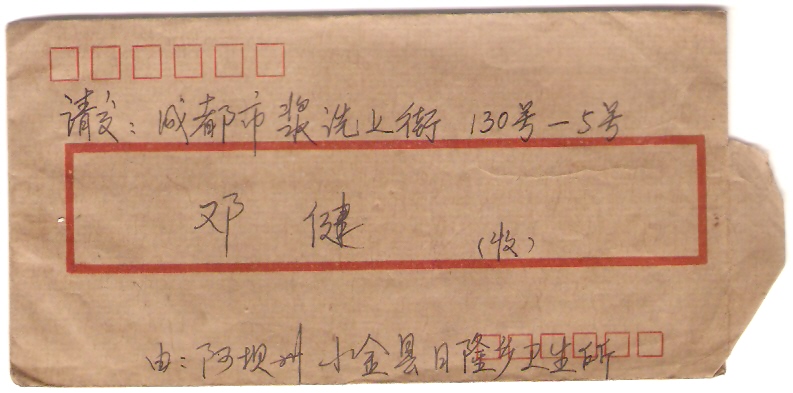 请交：成都市浆洗上街 130号—5号
邓健（收）
由：阿坝州小金县日隆乡卫生所